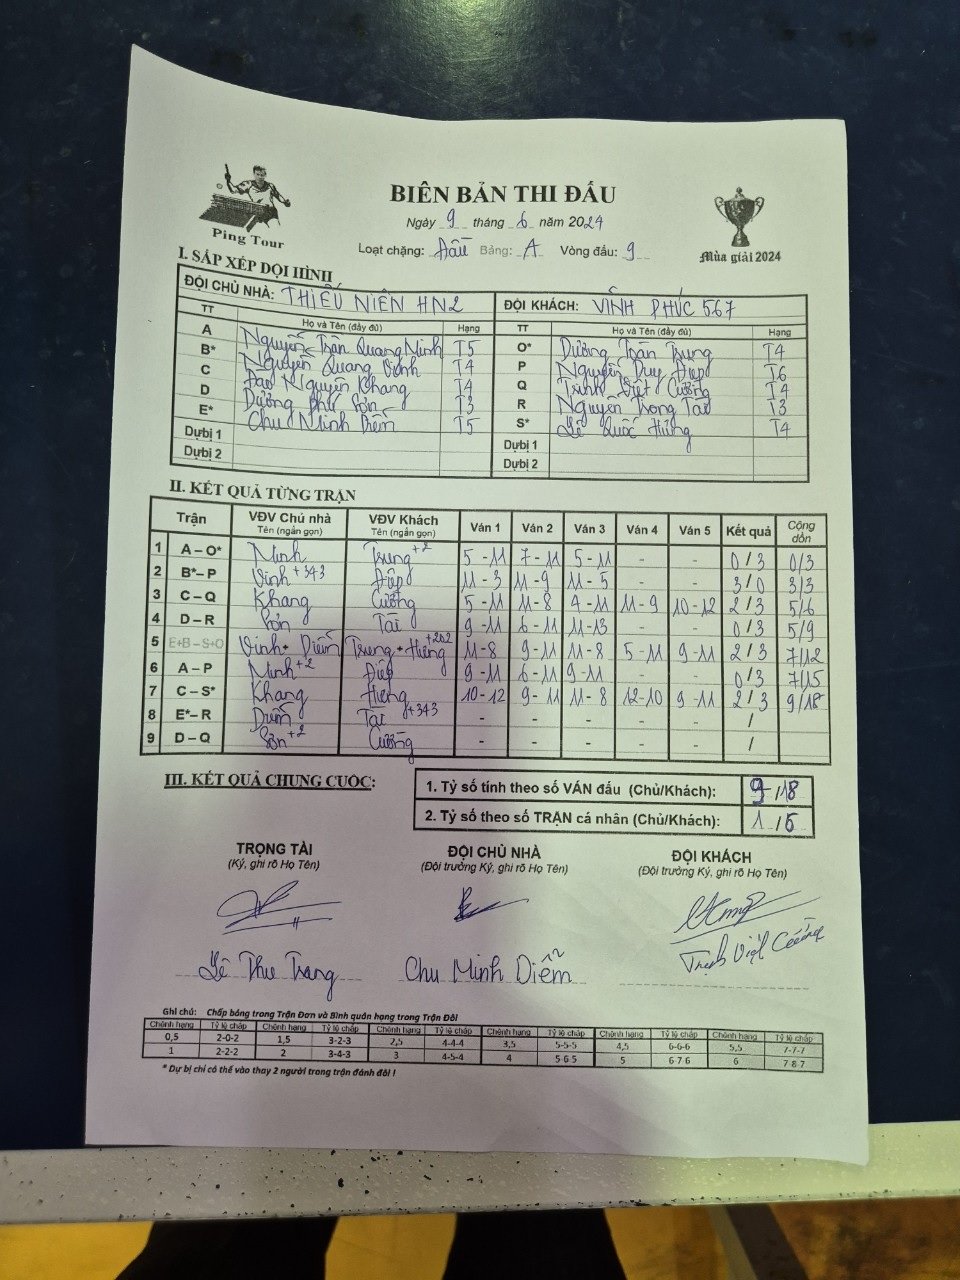 Ping Tour
BIÊN BẢN THI ĐẤU
Ngày 9 tháng 6 năm 2024
Loạt chặng: Đầu Bảng: A Vòng đấu: 9
Mùa giải 2024
I. SẮP XẾP ĐỘI HÌNH
ĐỘI CHỦ NHÀ: THIẾU NIÊN HN2 ĐỘI KHÁCH: VĨNH PHÚC 567
TT Họ và Tên (đầy đủ) Hạng TT Họ và Tên (đầy đủ) Hạng
A Nguyễn Trần Quang Minh T5 O* Dương Toàn Trung T4
B* Nguyễn Quang Vinh T4 P Nguyễn Duy Điệp T6
C Đào Nguyên Khang T4 Q Trịnh Việt Cường T4
D Dương Phú Sơn T3 R Nguyễn Trọng Tài T3
E* Chu Minh Diễm T5 S* Lê Quốc Hưng T4
Dựbị 1 Dựbị 1
Dựbị 2 Dựbị 2
II. KẾT QUẢ TỪNG TRẬN
Trận VĐV Chủ nhà Tên (ngắn gọn) VĐV Khách Tên (ngắn gọn) Ván 1 Ván 2 Ván 3 Ván 4 Ván 5 Kết quả Cộng dồn
1 A – O* Minh Trung +2 5 - 11 7 - 11 5 - 11 - - 0 / 3 0/3
2 B* – P Vinh +343 Điệp 11 - 3 11 - 9 11 - 5 - - 3 / 0 3/3
3 C – Q Khang Cường 5 - 11 11 - 8 4 - 11 11 - 9 10 - 12 2 / 3 5/6
4 D – R Sơn Tài 9 - 11 6 - 11 11 - 13 - - 0 / 3 5/9
5 E+B – S+O Vinh + Diễm Trung + Hưng +202 11 - 8 9 - 11 11 - 8 5 - 11 9 - 11 2 / 3 7/12
6 A – P Minh +2 Điệp 9 - 11 6 - 11 9 - 11 - - 0 / 3 7/15
7 C – S* Khang Hưng 10 - 12 9 - 11 11 - 8 12 - 10 9 - 11 2 / 3 9/18
8 E* – R Diễm Tài +343 - - - - - /
9 D – Q Sơn +2 Cường - - - - - /
III. KẾT QUẢ CHUNG CUỘC:
1. Tỷ số tính theo số VÁN đấu (Chủ/Khách): 9 / 18
2. Tỷ số theo số TRẬN cá nhân (Chủ/Khách): 1 / 5
TRỌNG TÀI ĐỘI CHỦ NHÀ ĐỘI KHÁCH
(Ký, ghi rõ Họ Tên) (Đội trưởng Ký, ghi rõ Họ Tên) (Đội trưởng Ký, ghi rõ Họ Tên)
Lê Thu Trang Chu Minh Diễm Trịnh Việt Cường
Ghi chú: Chấp bóng trong Trận Đơn và Bình quân hạng trong Trận Đôi
Chênh hạng Tỷ lệ chấp Chênh hạng Tỷ lệ chấp Chênh hạng Tỷ lệ chấp Chênh hạng Tỷ lệ chấp Chênh hạng Tỷ lệ chấp Chênh hạng Tỷ lệ chấp
0,5 2-0-2 1,5 3-2-3 2,5 4-4-4 3,5 5-5-5 4,5 6-6-6 5,5 7-7-7
1 2-2-2 2 3-4-3 3 4-5-4 4 5 6 5 5 6 7 6 6 7 8 7
* Dự bị chỉ có thể vào thay 2 người trong trận đánh đôi !